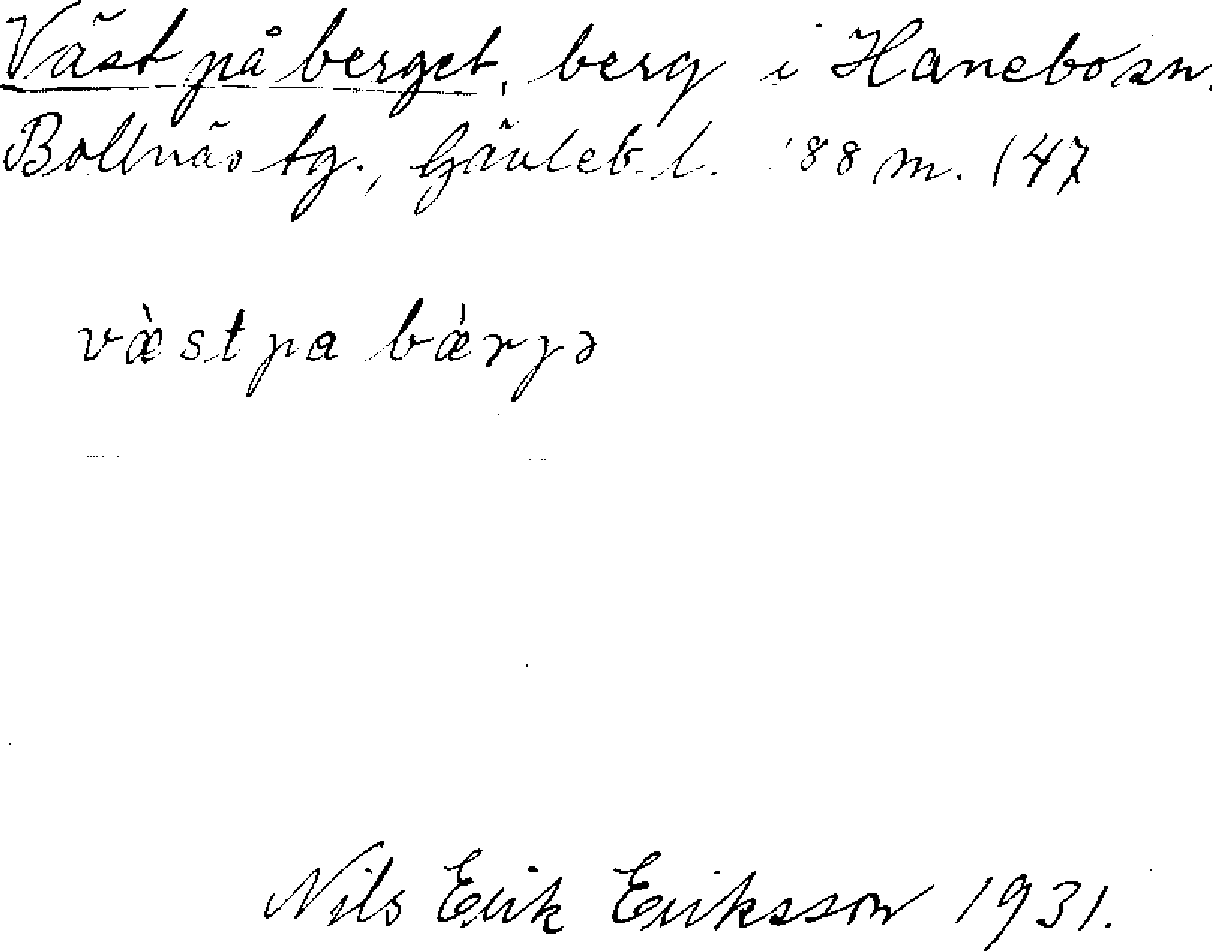 Väst på berget, berg i Hanebo sn.
Bollnäs tg., Gävleb. l. 88 m. 147
væ̀st pa bæ̀rjə
Nils Erik Eriksson 1931.